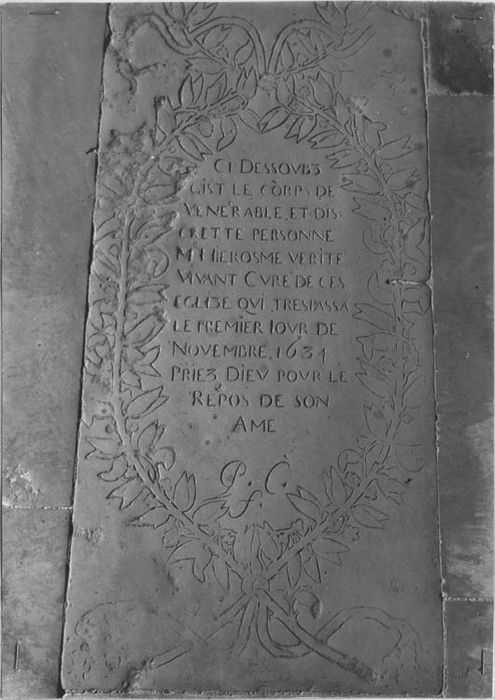 CI DESSOVBZ
GIST LE CORPS DE
VENERABLE, ET DIS-
CRETTE PERSONNE
Mᵉ HIEROSME VERITÉ
VIVANT CVRÉ DE CES
EGLIZE QVI TRESPASSA
LE PREMIER IOVR DE
NOVEMBRE, 1634
PRIEZ DIEV POVR LE
REPOS DE SON
AME